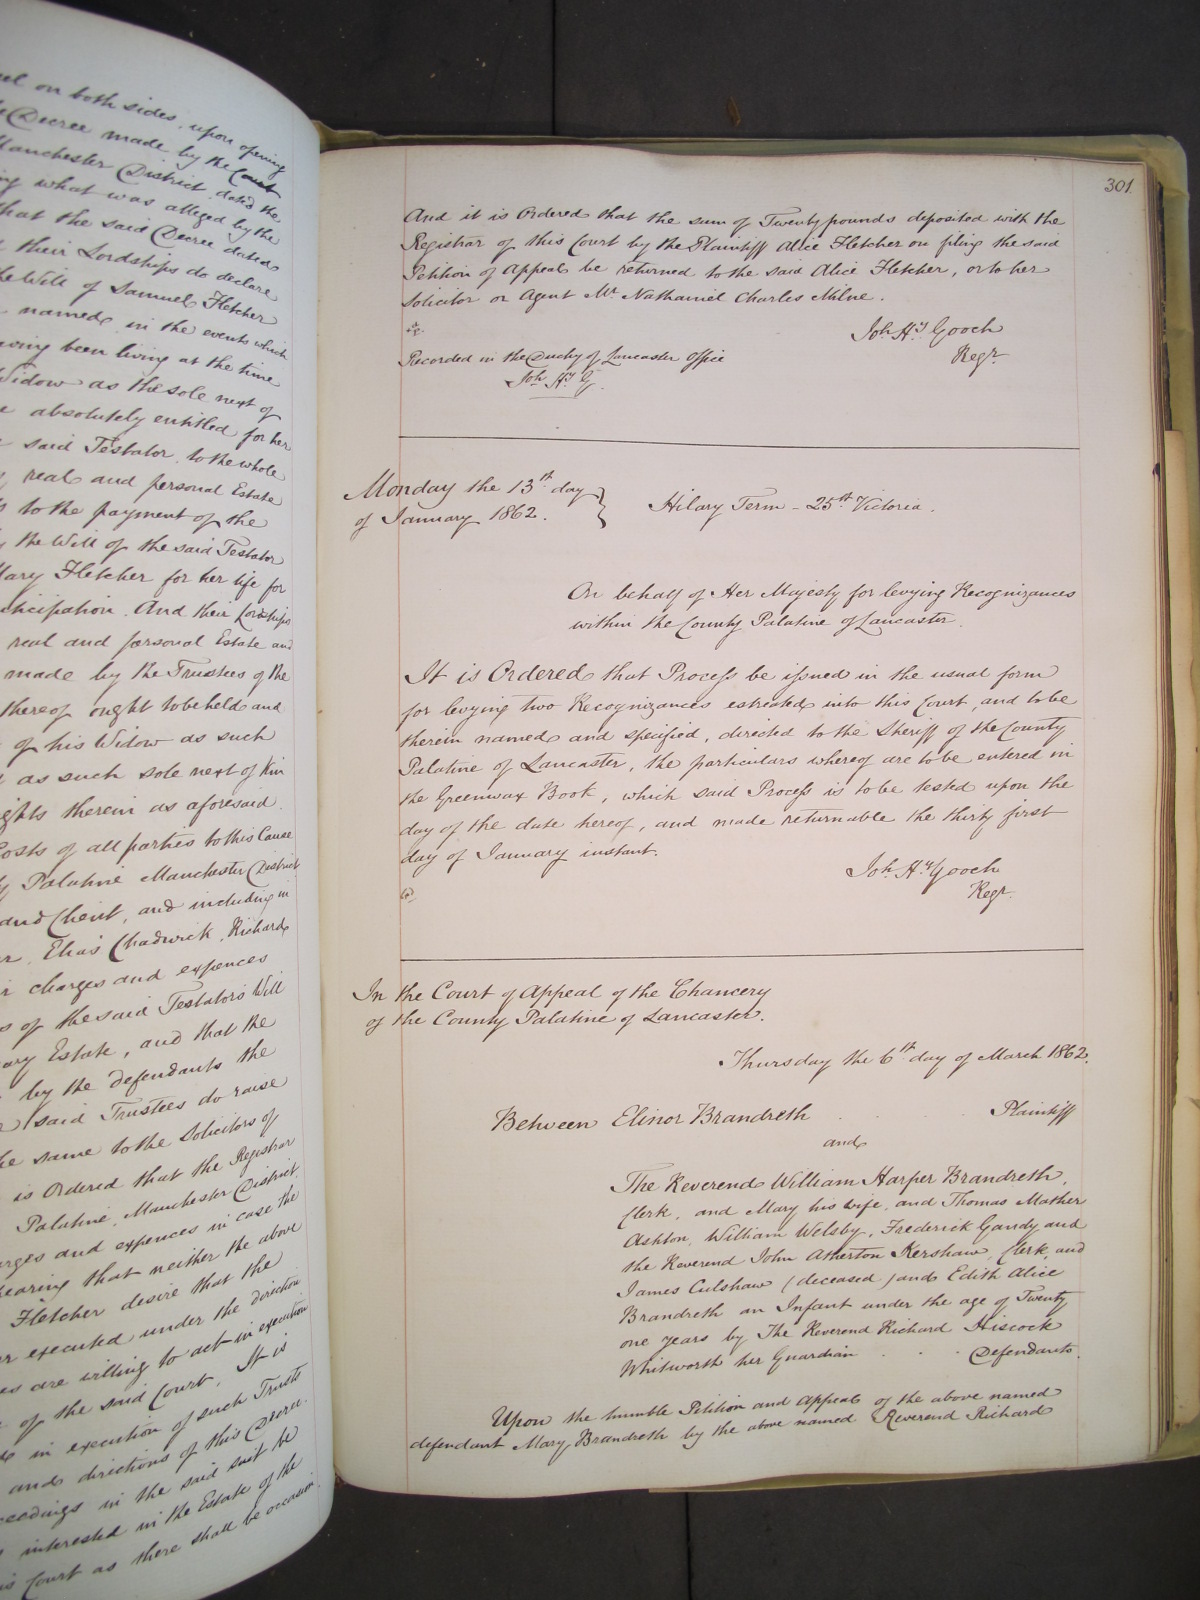 uel on both sides, upon opening
Decree made by the Court
Manchester District dated the
ing what was alleged by the
that the said Decree dated
their Lordships do declare
the Will of Samuel Fletcher
named in the events which
having been living at the time
Widow as the sole next of
absolutely entitled for her
said Testator to the whole
real and personal Estate
to the payment of the
the Will of the said Testator
Mary Fletcher for her life for
nticipation. And their Lordships
real and personal Estate and
made by the Trustees of the
thereof ought to be held and
of his Widow as such
as such sole next of Kin
ghts therein as aforesaid.
Costs of all parties to this Cause
Palatine Manchester District
and Client, and including in
Elias Chadwick, Richard
charges and expences
of the said Testator's Will
ary Estate, and that the
by the defendants the
said Trustees do raise
the same to the Solicitors of
is Ordered that the Registrar
Palatine, Manchester District
arges and expences in case the
pearing that neither the above
Fletcher desire that the
executed under the direction
es are willing to act in execution
of the said Court. It is
in execution of such Trusts
and directions of this Decree.
ceedings in the said suit be
interested in the Estate of the
is Court as there shall be occasion.
301.
And it is Ordered that the sum of Twenty pounds deposited with the
Registrar of this Court by the Plaintiff Alice Fletcher on filing the said
Petition of Appeal be returned to the said Alice Fletcher, or to her
Solicitor or Agent Mr. Nathaniel Charles Milne.
Joh. Hy. Gooch
Regr.
Recorded in the Duchy of Lancaster Office
Joh. Hy. G.
Monday the 13th day
of January 1862.
Hilary Term - 25th Victoria.
On behalf of Her Majesty for levying Recognizances
within the County Palatine of Lancaster.
It is Ordered that Process be issued in the usual form
for levying two Recognizances estreated into this Court, and to be
therein named and specified, directed to the Sheriff of the County
Palatine of Lancaster, the particulars whereof are to be entered in
the Greenwax Book, which said Process is to be tested upon the
day of the date hereof, and made returnable the thirty first
day of January instant.
Joh. Hy. Gooch
Regr.
In the Court of Appeal of the Chancery
of the County Palatine of Lancaster.
Thursday the 6th day of March 1862.
Between Elinor Brandreth . . Plaintiff
and
The Reverend William Harper Brandreth,
Clerk, and Mary his wife, and Thomas Mather
Ashton, William Welsby, Frederick Gandy and
the Reverend John Atherton Kershaw, Clerk, and
James Culshaw (deceased) and Edith Alice
Brandreth an Infant under the age of Twenty
one years by The Reverend Richard Hiscock
Whitworth her Guardian . . . Defendants.
Upon the humble Petition and Appeal of the above named
defendant Mary Brandreth by the above named Reverend Richard